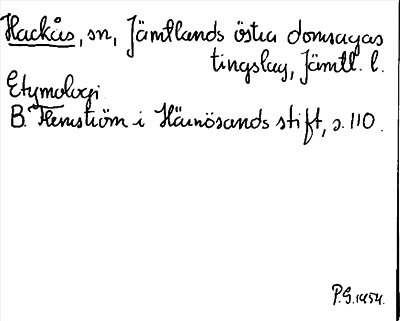 Hackås, sn, Jämtlands östra domsagas
tingslag, Jämtl. l.
Etymologi
B. Flemström i Härnösands stift, s. 110.
P.G. 1454.